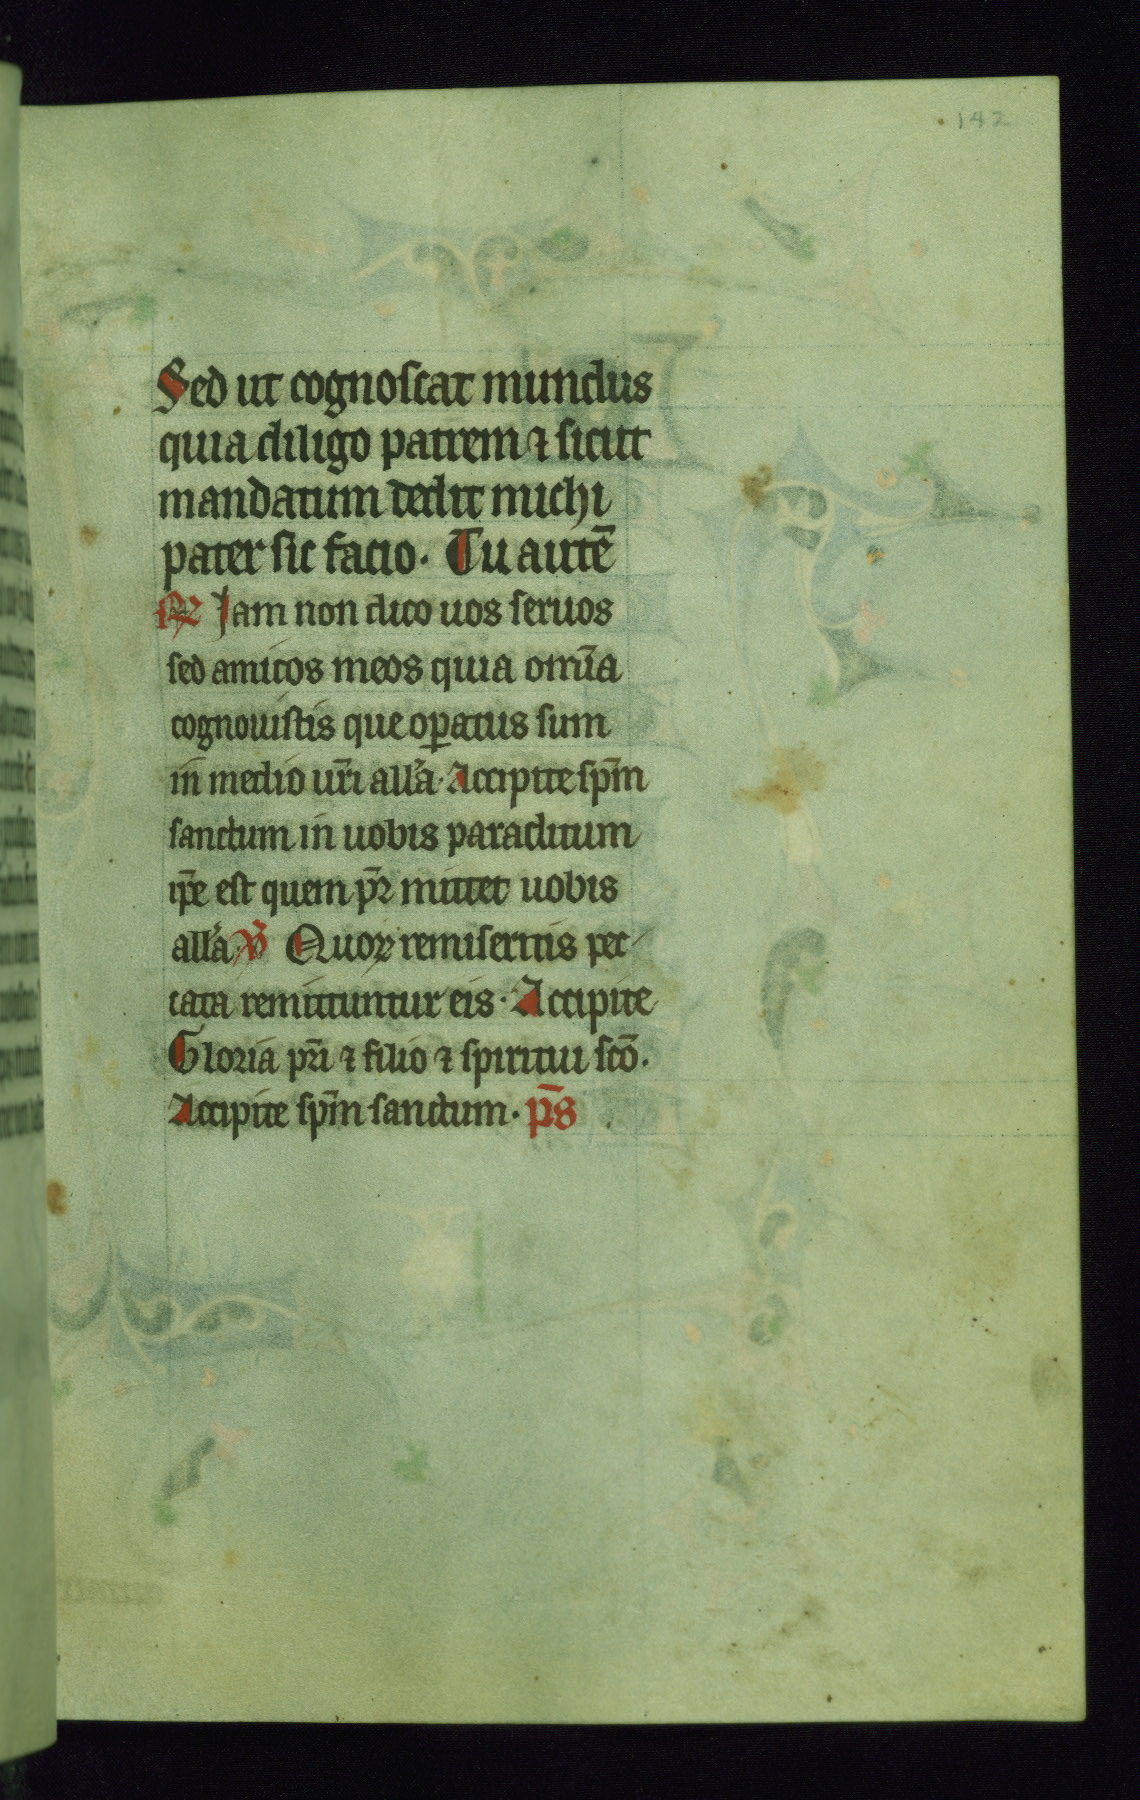 142
Sed ut cognoscat mundus
quia diligo patrem ⁊ sicut
mandatum dedit michi
pater sic facio. Tu autē
R Jam non dico uos seruos
sed amicos meos quia om̄ia
cognouistis que oꝑatus sum
in medio ur̄i all'a. Accipite sp̄m
sanctum in uobis paraclitum
ip̄e est quem pr̄ mittet uobis
all'a V̄ Quoꝝ remiseritis pec
cata remittuntur eis. Accipite
Gloria pr̄i ⁊ filio ⁊ spiritui sc̄o.
Accipite sp̄m sanctum. p̄s